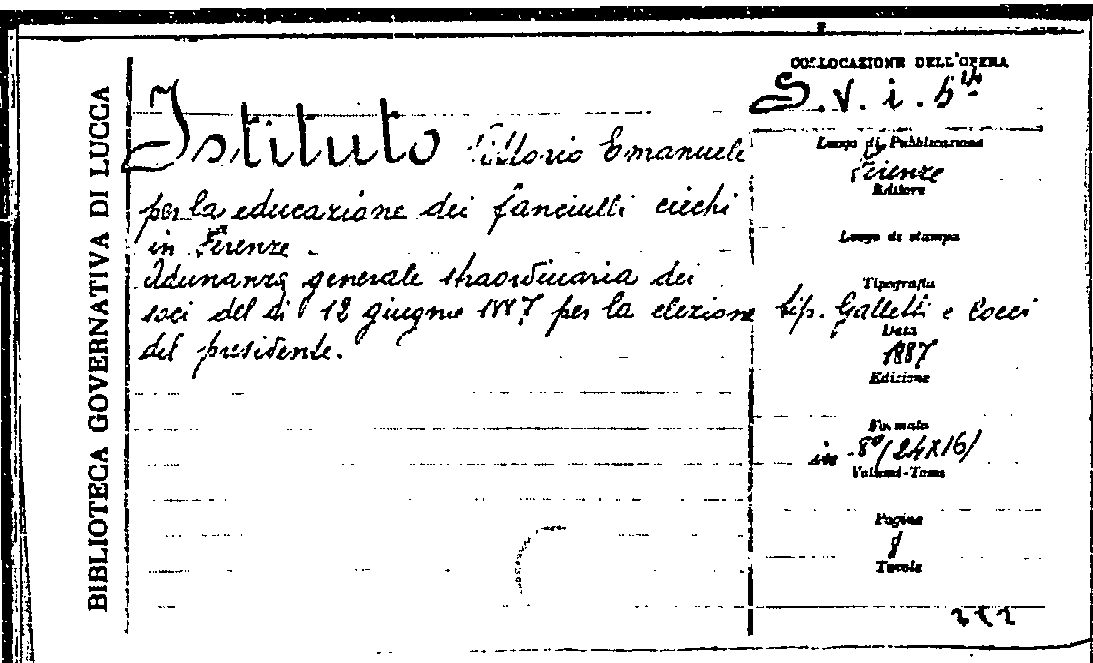 BIBLIOTECA GOVERNATIVA DI LUCCA
COLLOCAZIONE DELL'OPERA
S. V. i. b
Istituto Vittorio Emanuele
per la educazione dei fanciulli ciechi
in Firenze.
Adunanza generale straordinaria dei
soci del dì 12 giugno 1887 per la elezione
del presidente.
Luogo di Pubblicazione
Firenze
Editore
Luogo di stampa
Tipografia
tip. Galletti e Cocci
Data
1887
Edizione
Formato
in-8º (24x16)
Volumi-Tomo
Pagine
8
Tavole